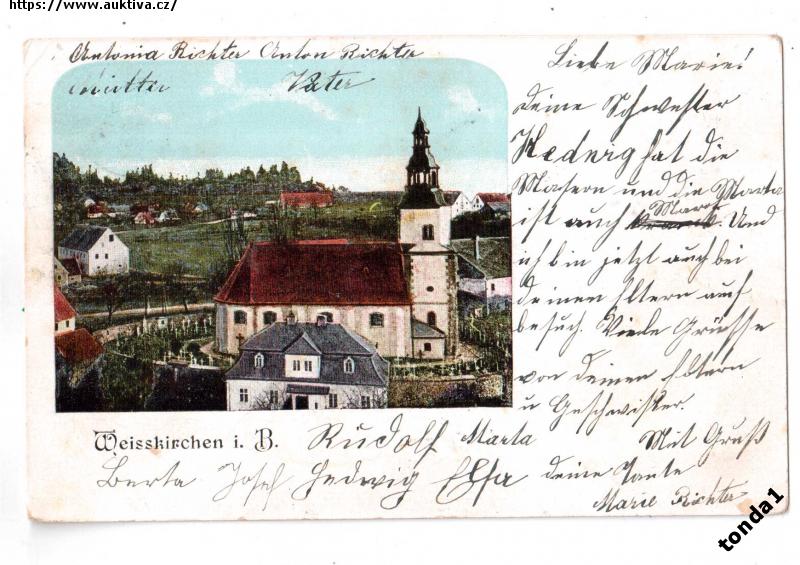 https://www.auktiva.cz/
Antonia Richter Anton Richter
Mutter Vater
Liebe Marie!
deine Schwester
Hedwig hat die
Masern und die Marta
ist auch Marod. Und
ich bin jetzt auch bei
deinen Eltern auf
besuch. Viele Grüsse
von deinen Eltern
u Geschwister.
Mit Gruß
deine Tante
Marie Richter
Weisskirchen i. B.
Rudolf Marta
Berta Josef Hedwig Elsa
tonda1